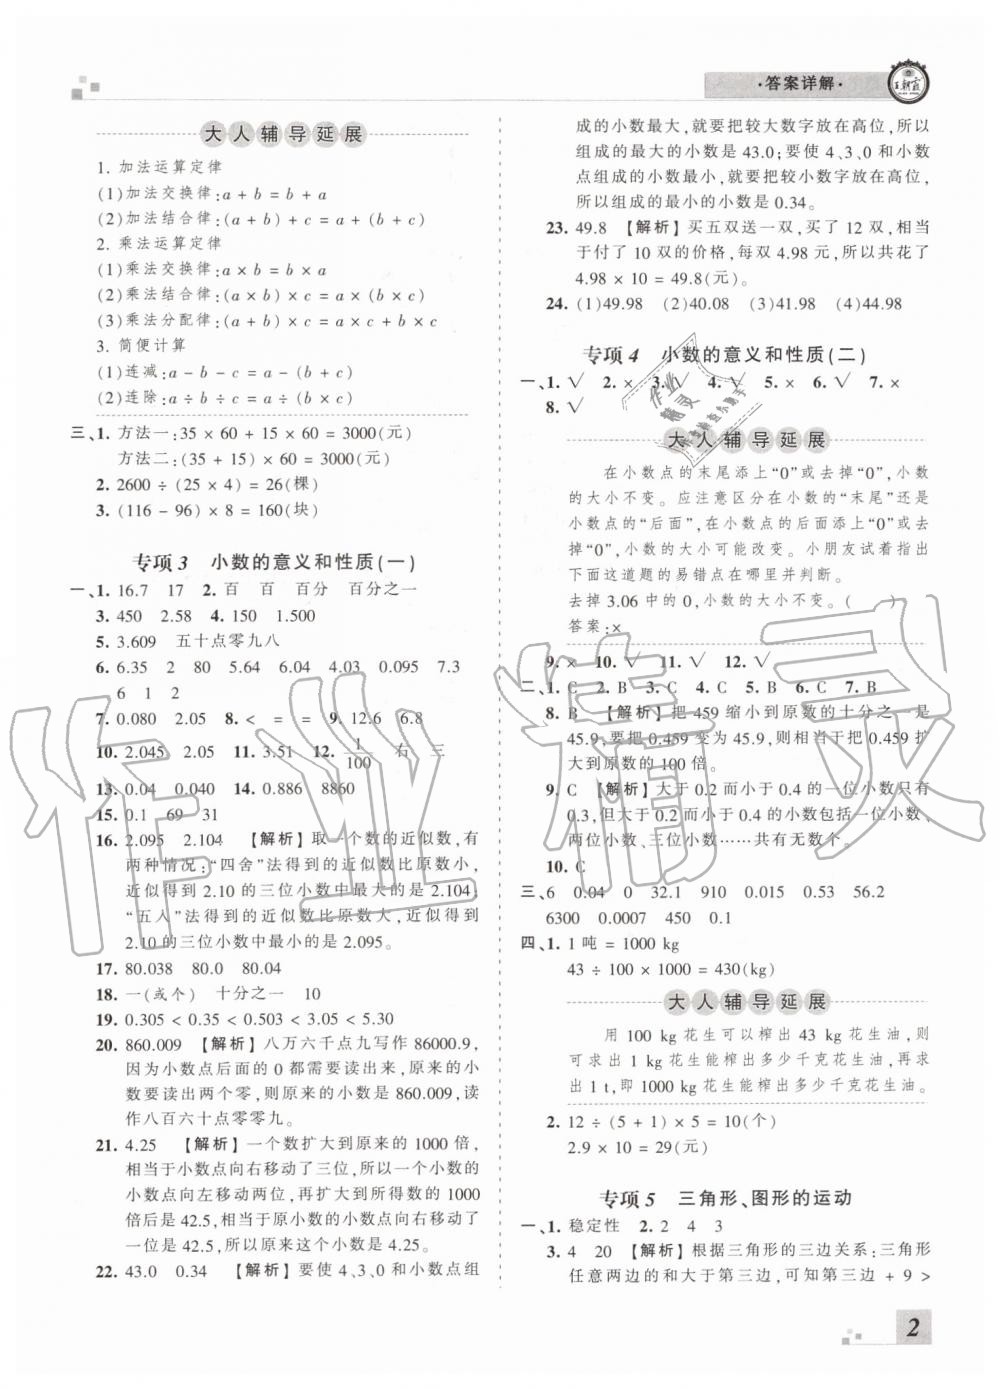 ·答案详解·
王朝霞
大人辅导延展
1. 加法运算定律
(1)加法交换律:a + b = b + a
(2)加法结合律:(a + b) + c = a + (b + c)
2. 乘法运算定律
(1)乘法交换律:a × b = b × a
(2)乘法结合律:(a × b) × c = a × (b × c)
(3)乘法分配律:(a + b) × c = a × c + b × c
3. 简便计算
(1)连减:a − b − c = a − (b + c)
(2)连除:a ÷ b ÷ c = a ÷ (b × c)
三、1. 方法一:35 × 60 + 15 × 60 = 3000(元)
方法二:(35 + 15) × 60 = 3000(元)
2. 2600 ÷ (25 × 4) = 26(棵)
3. (116 − 96) × 8 = 160(块)
专项3 小数的意义和性质(一)
一、1. 16.7 17 2. 百 百 百分 百分之一
3. 450 2.58 4. 150 1.500
5. 3.609 五十点零九八
6. 6.35 2 80 5.64 6.04 4.03 0.095 7.3
6 1 2
7. 0.080 2.05 8. < = = 9. 12.6 6.8
10. 2.045 2.05 11. 3.51 12. 1/100 右 三
13. 0.04 0.040 14. 0.886 8860
15. 0.1 69 31
16. 2.095 2.104 【解析】取一个数的近似数,有
两种情况:“四舍”法得到的近似数比原数小,
近似得到 2.10 的三位小数中最大的是 2.104,
“五入”法得到的近似数比原数大,近似得到
2.10 的三位小数中最小的是 2.095。
17. 80.038 80.0 80.04
18. 一(或个) 十分之一 10
19. 0.305 < 0.35 < 0.503 < 3.05 < 5.30
20. 860.009 【解析】八万六千点九写作 86000.9,
因为小数点后面的 0 都需要读出来,原来的小
数要读出两个零,则原来的小数是 860.009,读
作八百六十点零零九。
21. 4.25 【解析】一个数扩大到原来的 1000 倍,
相当于小数点向右移动了三位,所以一个小数的
小数点向左移动两位,再扩大到所得数的 1000
倍后是 42.5,相当于原小数的小数点向右移动了
一位是 42.5,所以原来的小数是 4.25。
22. 43.0 0.34 【解析】要使 4、3、0 和小数点组
成的小数最大,就要把较大数字放在高位,所以
组成的最大的小数是 43.0;要使 4、3、0 和小数
点组成的小数最小,就要把较小数字放在高位,
所以组成的最小的小数是 0.34。
23. 49.8 【解析】买五双送一双,买了 12 双,相当
于付了 10 双的价格,每双 4.98 元,所以共花了
4.98 × 10 = 49.8(元)。
24. (1)49.98 (2)40.08 (3)41.98 (4)44.98
专项4 小数的意义和性质(二)
一、1. √ 2. × 3. √ 4. √ 5. × 6. √ 7. ×
8. √
大人辅导延展
在小数点的末尾添上“0”或去掉“0”,小数
的大小不变。应注意区分在小数的“末尾”还是
小数点的“后面”,在小数点的后面添上“0”或去
掉“0”,小数的大小可能改变。小朋友试着指出
下面这道题的易错点在哪里并判断。
去掉 3.06 中的 0,小数的大小不变。( )
答案:×
9. × 10. √ 11. √ 12. √
二、1. C 2. B 3. C 4. C 5. B 6. C 7. B
8. B 【解析】把 459 缩小到原数的十分之一是
45.9,要把 0.459 变为 45.9,则相当于把 0.459 扩
大到原数的 100 倍。
9. C 【解析】大于 0.2 而小于 0.4 的一位小数只有
0.3,但大于 0.2 而小于 0.4 的小数包括一位小数、
两位小数、三位小数……共有无数个。
10. C
三、6 0.04 0 32.1 910 0.015 0.53 56.2
6300 0.0007 450 0.1
四、1. 1 吨 = 1000 kg
43 ÷ 100 × 1000 = 430(kg)
大人辅导延展
用 100 kg 花生可以榨出 43 kg 花生油,则
可求出 1 kg 花生能榨出多少千克花生油,再求
出 1 t,即 1000 kg 花生能榨出多少千克花生油。
2. 12 ÷ (5 + 1) × 5 = 10(个)
2.9 × 10 = 29(元)
专项5 三角形、图形的运动
一、1. 稳定性 2. 2 4 3
3. 4 20 【解析】根据三角形的三边关系:三角形
任意两边的和大于第三边,可知第三边 + 9 >
2
作业精灵